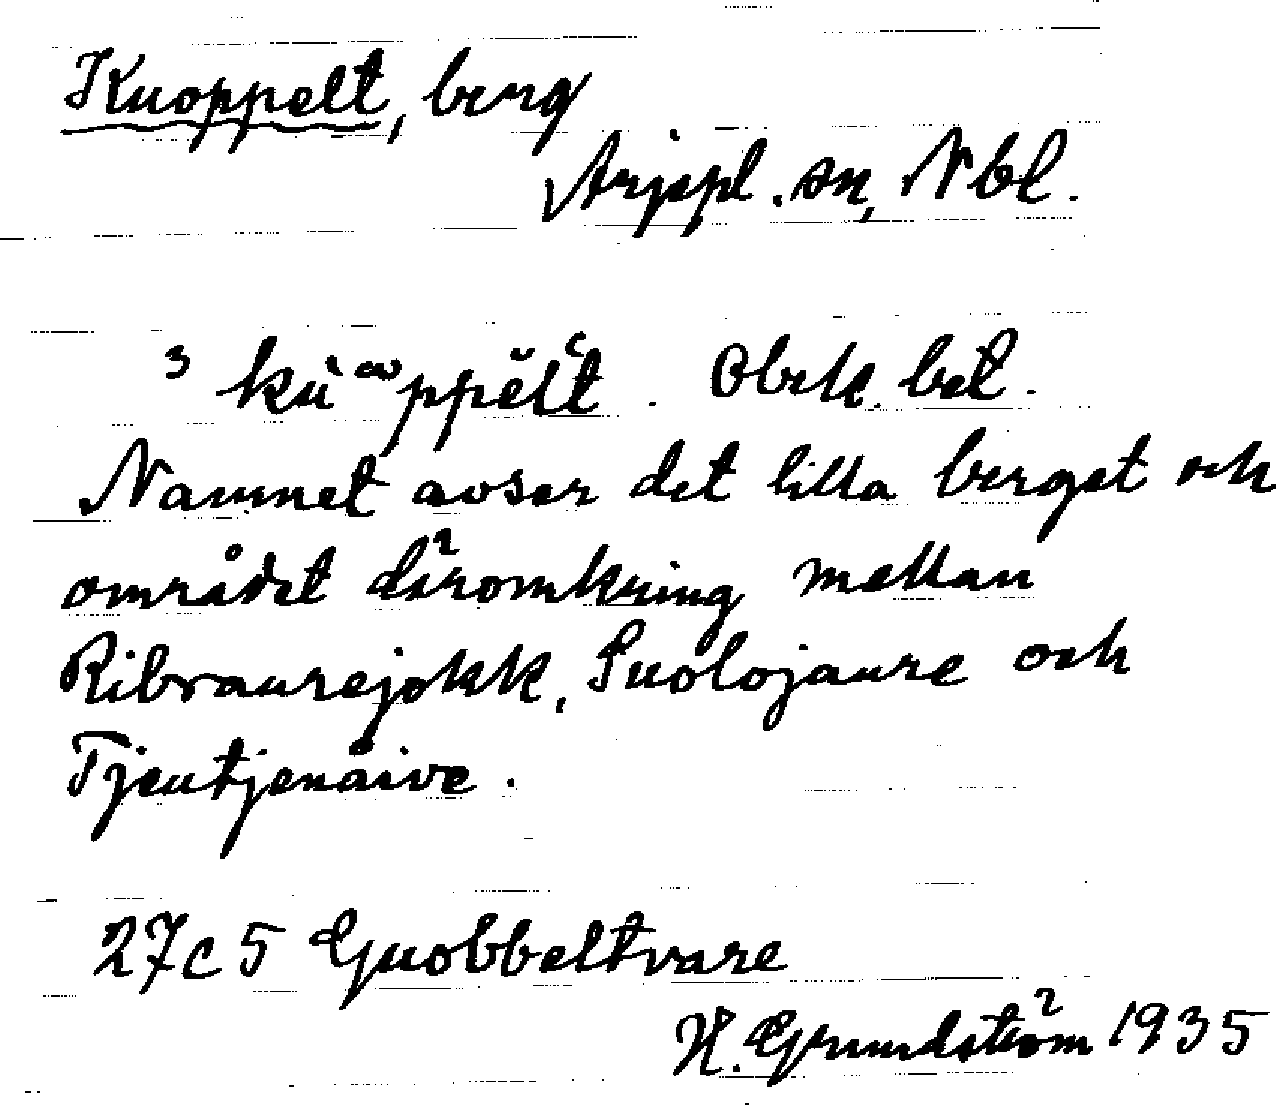 Kuoppelt, berg
Arjepl. sn, Nbl.
³ kù ͣppĕlt̒ . Obek. bet.
Namnet avser det lilla berget och
området däromkring mellan
Ribraurejokk, Suolojaure och
Tjeutjenåive.
27c5 Guobbeltvare
H. Grundström 1935